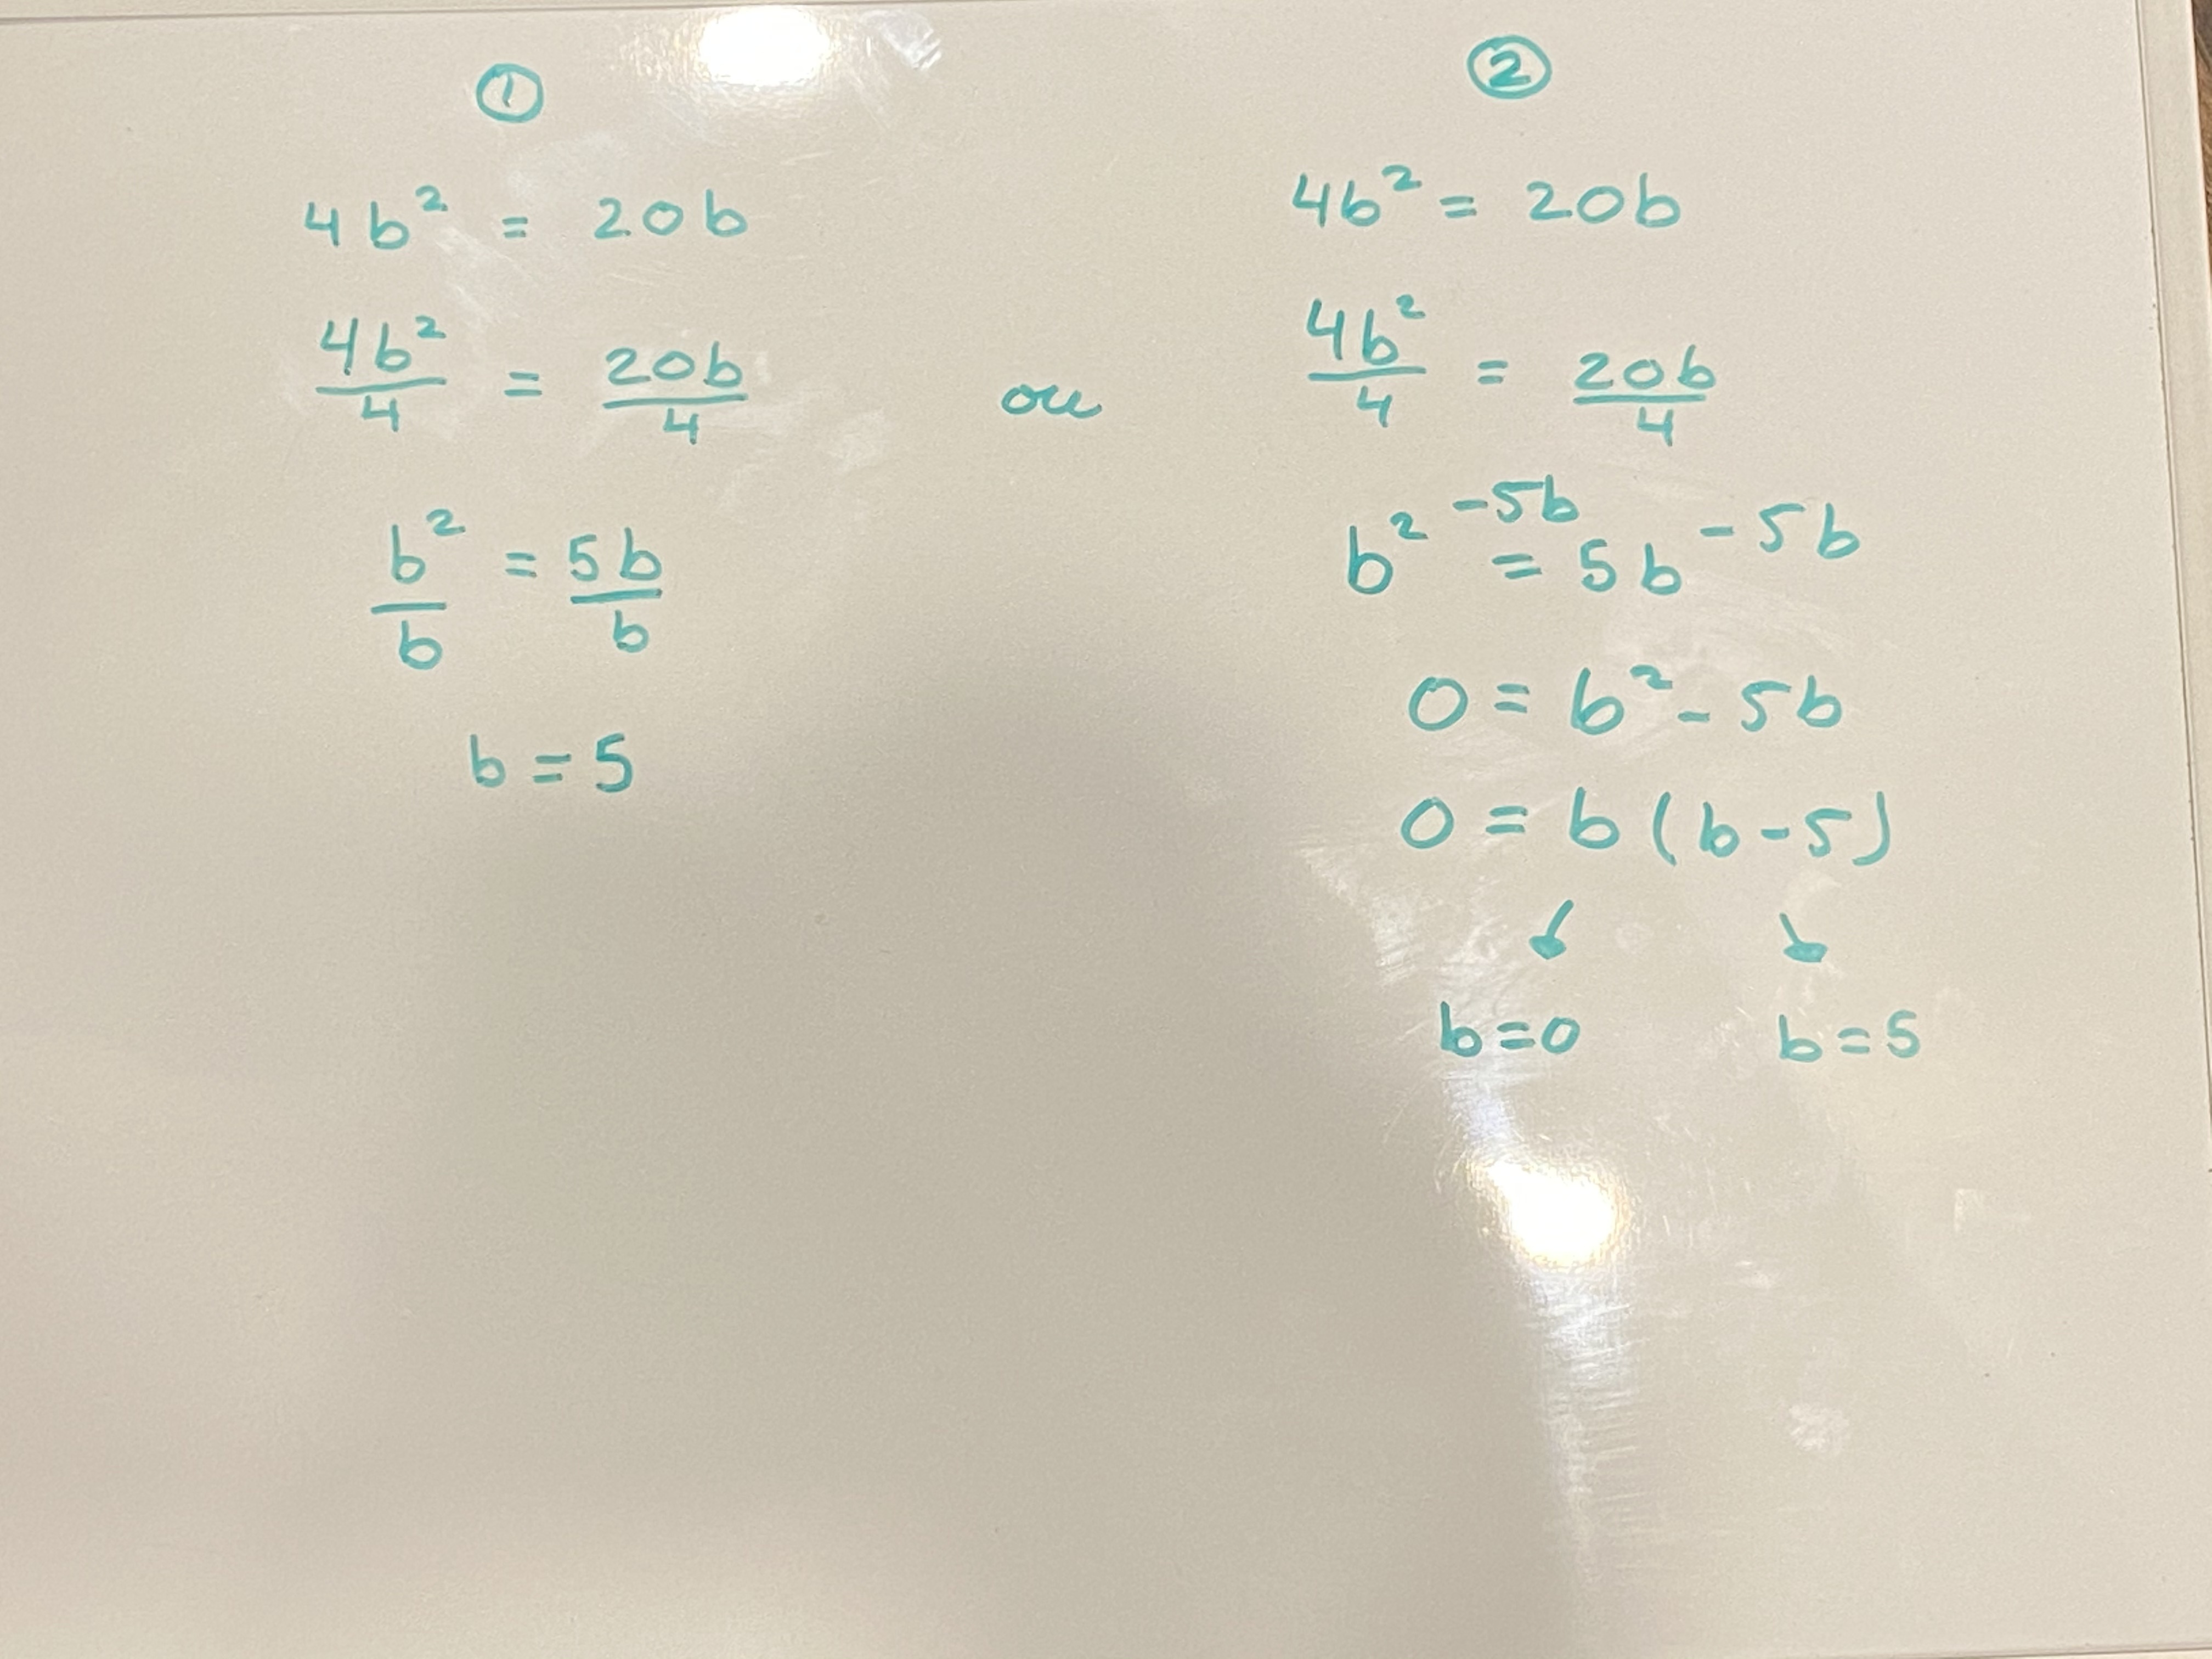 ①
4b² = 20b
4b²/4 = 20b/4
b²/b = 5b/b
b = 5
ou
②
4b² = 20b
4b²/4 = 20b/4
b² -5b = 5b -5b
0 = b² - 5b
0 = b (b - 5)
↙ ↘
b = 0 b = 5